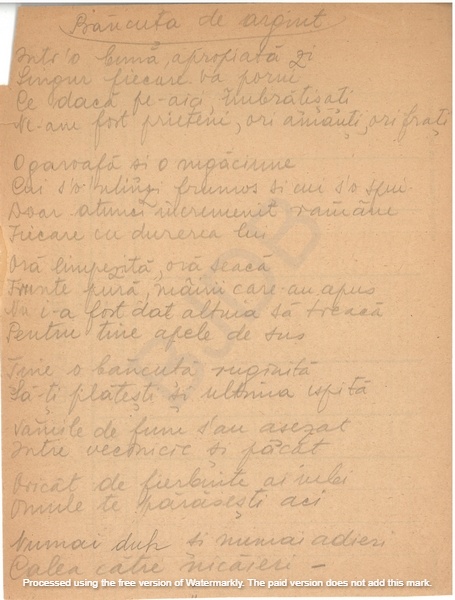 Băncuța de argint
Într'o bună, apropiată zi
Singur fiecare va porni
Ce dacă pe-aici, îmbrățișați
Ne-am fost prieteni, ori amanți, ori frați
O garoafă și o rugăciune
Cui s'o 'ntinzi frumos și cui s'o spui
Doar atunci încremenit rămâne
Fiecare cu durerea lui
Oră limpezită, oră seacă
Frunte pură, mâini care-au apus
Nu i-a fost dat altuia să treacă
Pentru tine apele de sus
Ține o băncuță ruginită
Să-ți plătești și ultima ispită
Vămile de fum s'au așezat
Între vecinicie și păcat
Oricât de fierbinte ai iubi
Omule te părăsești aci
Numai duh și numai adieri
Calea către nicăieri –
Processed using the free version of Watermarkly. The paid version does not add this mark.